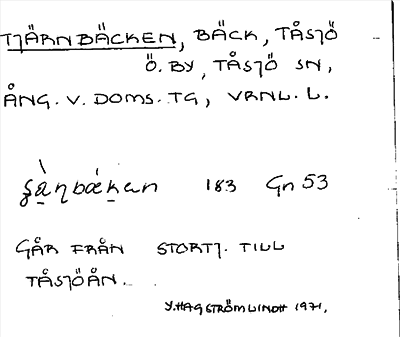 TJÄRNBÄCKEN, BÄCK, TÅSJÖ
Ö. BY, TÅSJÖ SN,
ÅNG. V. DOMS. TG, VRNL. L.
183 Gn 53
GÅR FRÅN STORTJ. TILL
TÅSJÖÅN.
Y. HAGSTRÖM LINDH 1971.